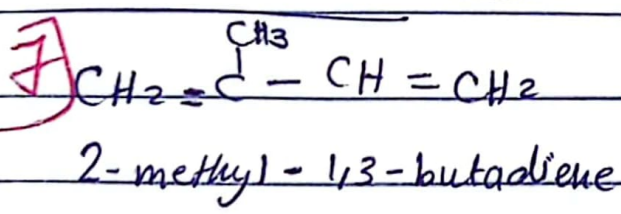 CH3
7) CH2 = C - CH = CH2
2-methyl - 1,3-butadiene